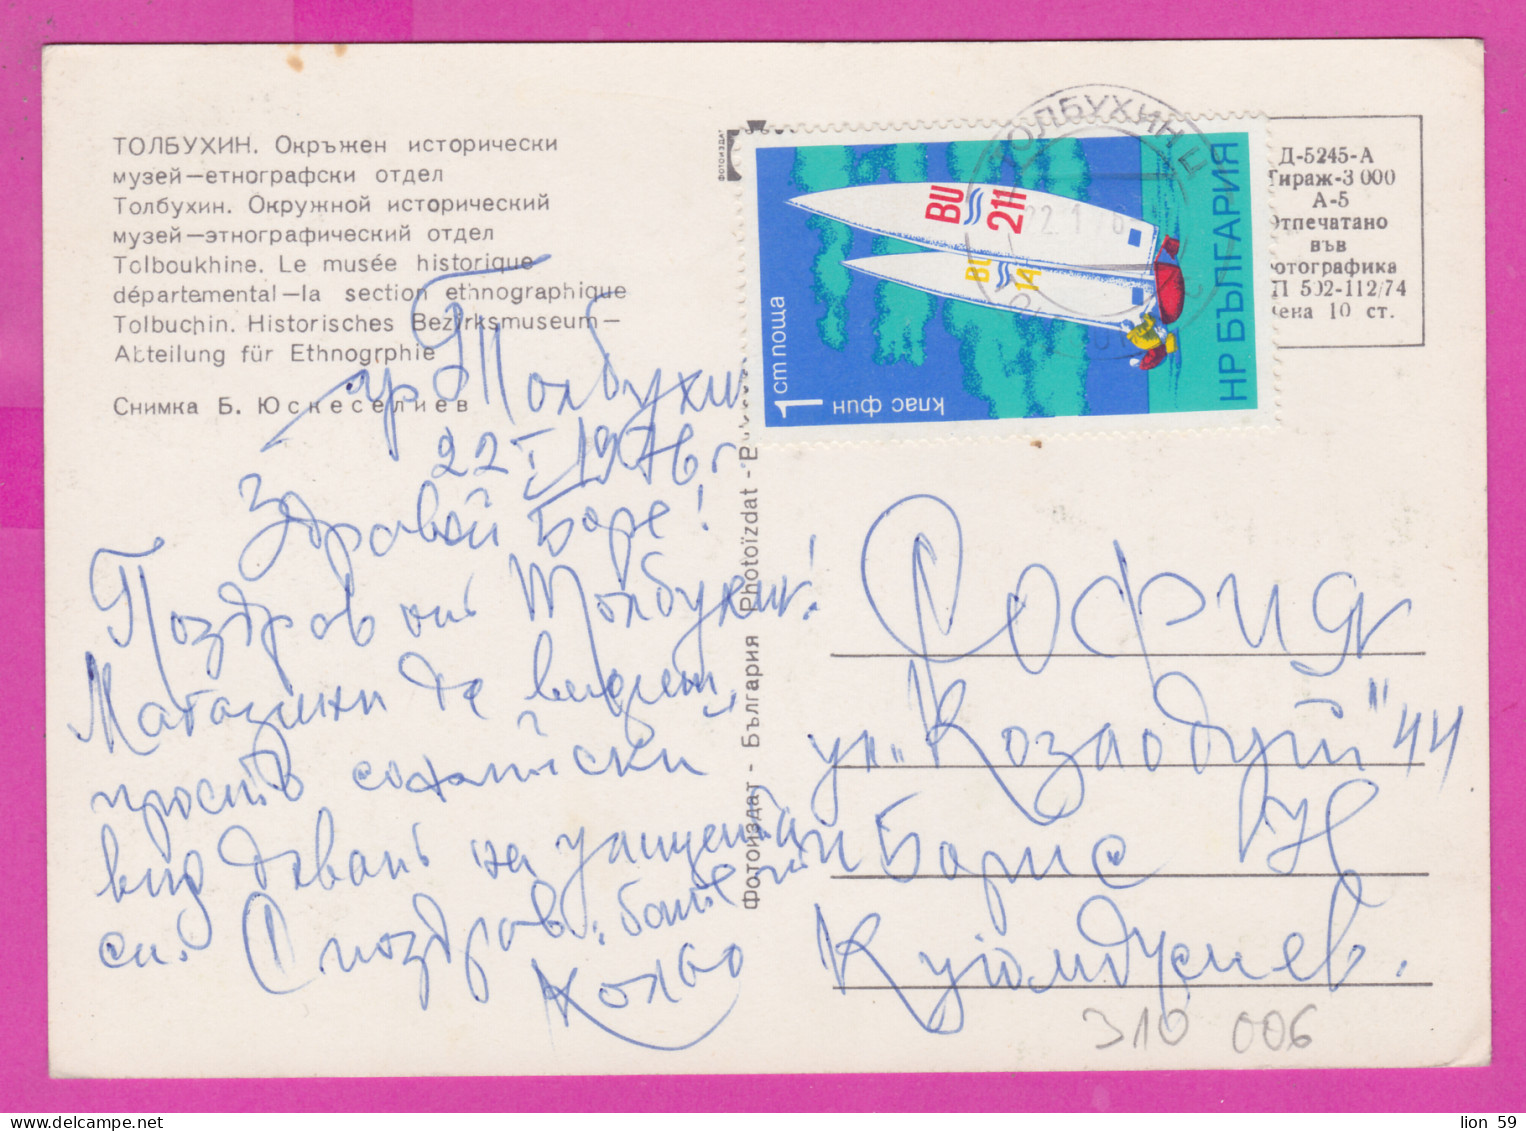 ТОЛБУХИН. Окръжен исторически
музей—етнографски отдел
Толбухин. Окружной исторический
музей—этнографический отдел
Tolboukhine. Le musée historique
départemental—la section ethnographique
Tolbuchin. Historisches Bezirksmuseum—
Abteilung für Ethnogrphie
Снимка Б. Юскеселиев
гр. Толбухин
22 I 1976 г
Здравей Боре!
Поздрав от Толбухин!
Магазини да видеш,
просто софийски
вид дават на
си. С поздрав:
Кольо
Фотоиздат - България Photoïzdat -
Фотоиздат
ТОЛБУХИН Ц
22.1.76
BU
211
BU
14
1 ст поща
клас фин
НР БЪЛГАРИЯ
Д-5245-А
Тираж-3 000
А-5
Отпечатано
във
фотографика
ДП 502-112/74
Цена 10 ст.
София
ул. "Козлодуй" 44
Борис
310 006
lion 59